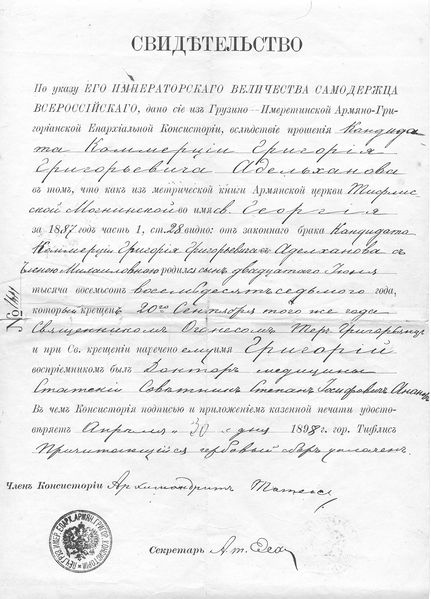 СВИДѢТЕЛЬСТВО
По указу ЕГО ИМПЕРАТОРСКАГО ВЕЛИЧЕСТВА САМОДЕРЖЦА
ВСЕРОССІЙСКАГО, дано сіе изъ Грузино-Имеретинской Армяно-Гри-
горіанской Епархіальной Консисторіи, вслѣдствіе прошенія Кандида
та Коммерціи Григорія
Григорьевича Адельханова
въ томъ, что какъ изъ метрической книги Армянской церкви Тифлис
ской Могнинской во имя св. Георгія
за 1887 годъ часть 1, ст. 28 видно: отъ законнаго брака Кандидата
Коммерціи Григорія Григорьевича Аделханова съ
Еленою Михайловною родился сынъ двадцатаго Іюня
тысяча восемьсотъ восемьдесятъ седьмого года,
который крещенъ 20го Сентября того же года
Священникомъ Оганесомъ Теръ Григорьянцъ
и при Св. крещеніи наречено ему имя Григорій
воспріемникомъ былъ Докторъ медицины
Статскій Совѣтникъ Степанъ
Въ чемъ Консисторія подписью и приложеніемъ казенной печати удосто-
вѣряетъ Апрѣля 30 дня 1898 г. гор. Тифлисъ
Причитающійся гербовый сборъ уплаченъ.
№ 1411
Членъ Консисторіи Архимандритъ
Секретарь